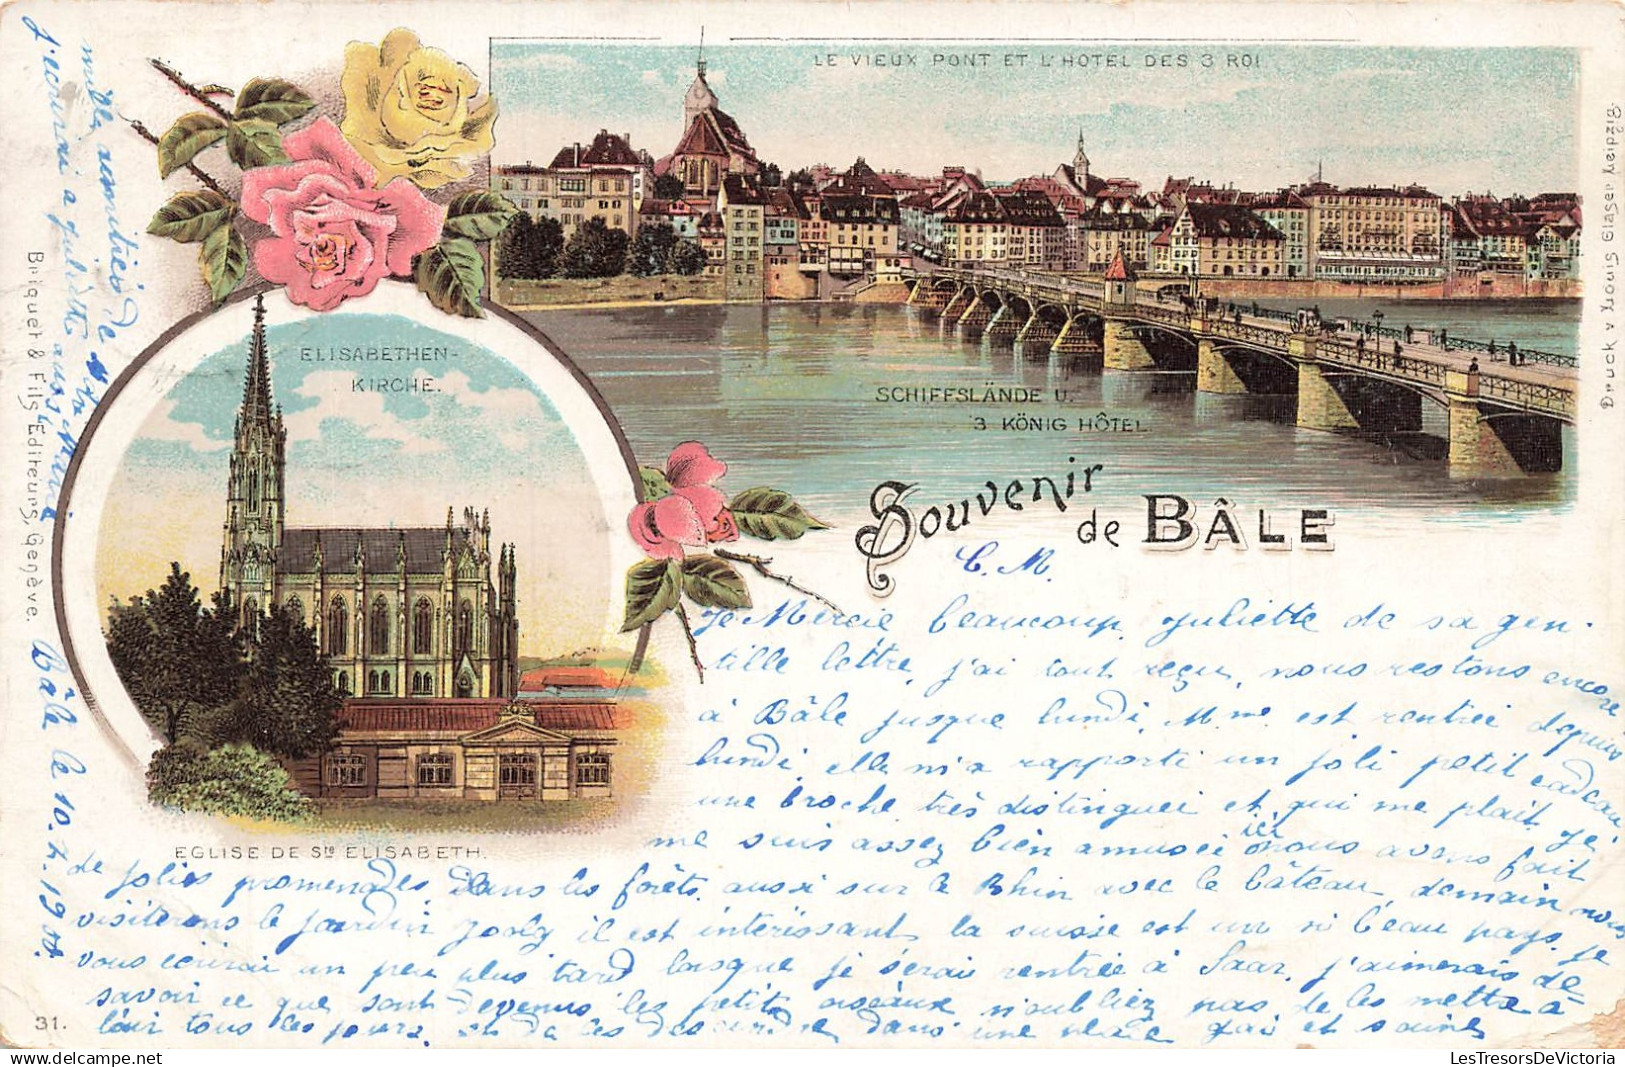 LE VIEUX PONT ET L'HOTEL DES 3 ROI
SCHIFFSLÄNDE U.
3 KÖNIG HÔTEL
ELISABETHEN-
KIRCHE.
EGLISE DE Ste ELISABETH.
Souvenir
de BÂLE
C. M.
Je Mercie beaucoup Juliette de sa gen-
tille lettre, j'ai tout reçu, nous restons encore
à Bâle jusque lundi, Mme est rentrée depuis
lundi, elle m'a rapporté un joli petit cadeau
une broche très distinguei et qui me plait. Je
me suis assez bien amusée ici nous avons fait
de jolies promenades dans les forêts aussi sur le Rhin avec le bâteau, demain nous
visiterons le jardin il est intérissant la suisse est un si beau pays. Je
vous écrirai un peu plus tard lorsque je serai rentrée à Saar, j'aimerais de
savoir ce que sont devenus les petits oiseaux n'oubliez pas de les mettre à
l'air tous les jours, et de les dans une place gai et
Bâle le 10.
j'écrirai à juliette aussi
mille amitiés de
Briquet & Fils Editeurs, Genève.
Druck v. Louis Glaser, Leipzig.
31.
LesTresorsDeVictoria